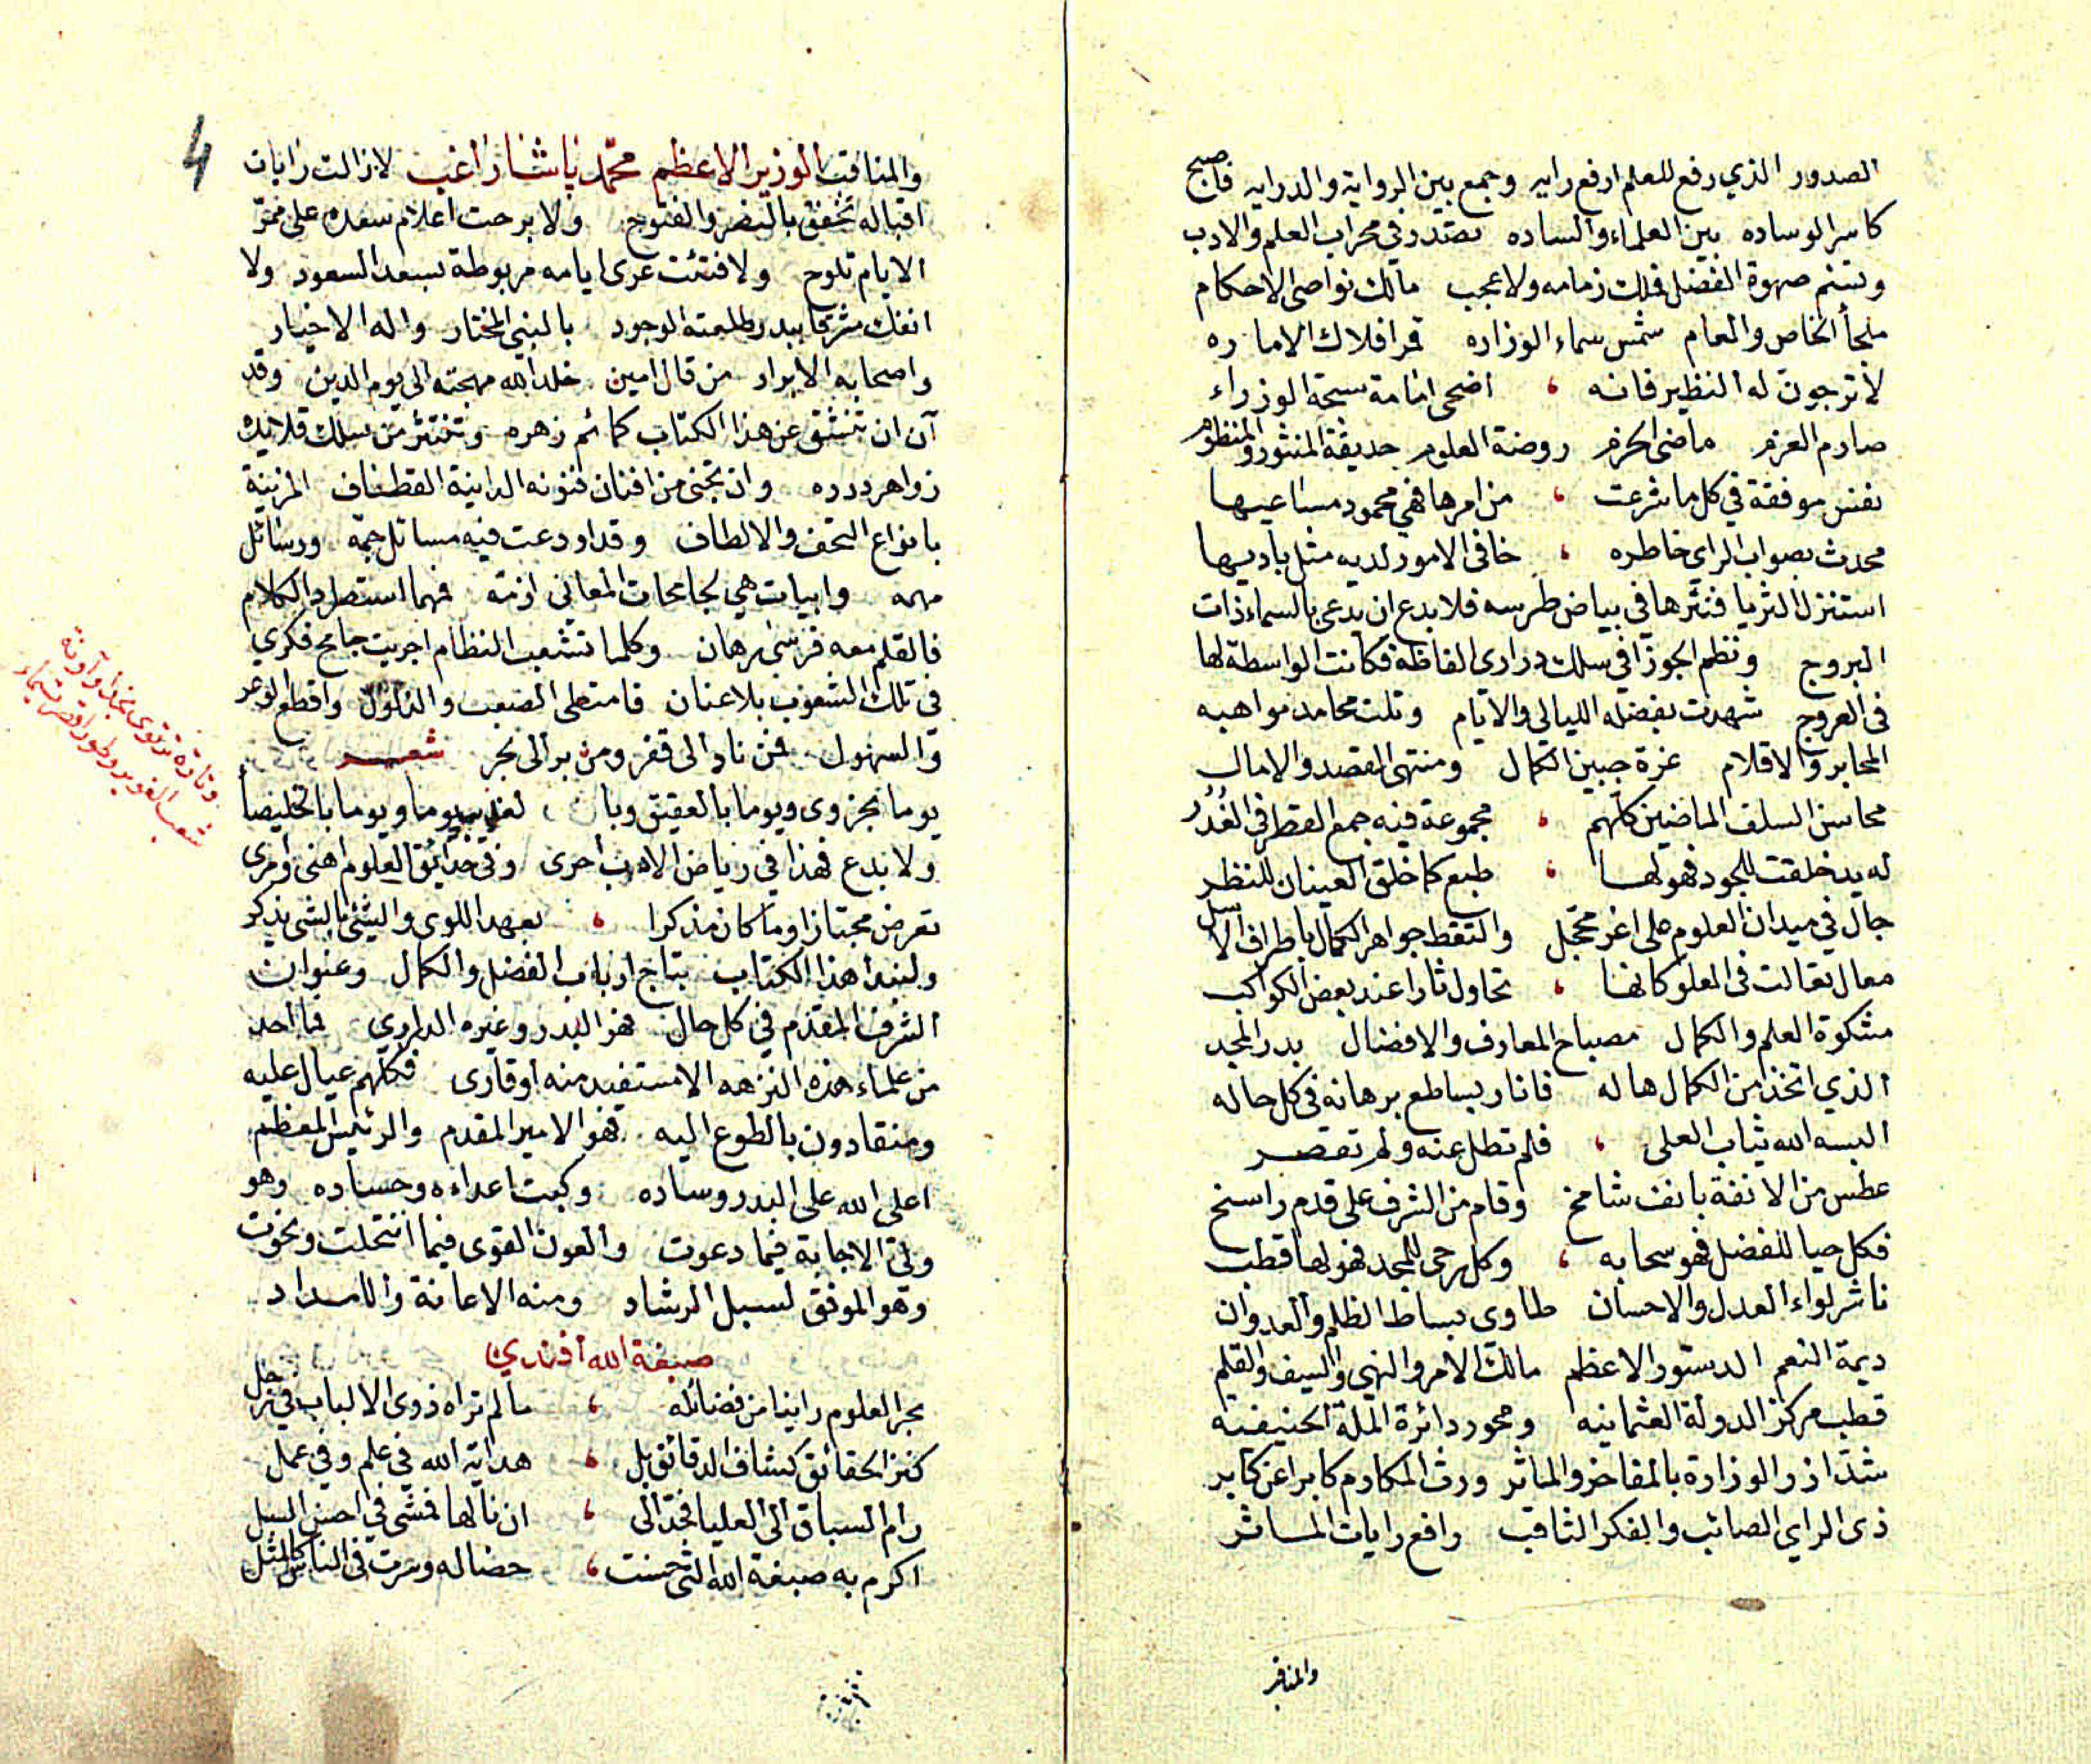 الصدور الذي رفع للعلم ارفع رايه وجمع بين الرواية والدرايه فاصبح
كاسر الوساده بين العلماء والساده تصدر في محراب العلم والادب
وتسنم صهوة الفضل فملك زمامه ولا عجب مالك نواصي الاحكام
ملجأ الخاص والعام شمس سماء الوزاره قمر افلاك الاماره
لا ترجون له النظير فانه ، اضحى امامة سبحة الوزراء
صارم العزم ماضى الحزم روضة العلوم حديقة المنثور والمنظوم
نفس موفقة في كل ما شرعت ، من امرها فهي محمود مساعيها
محدث بصواب الراى خاطره ، خافى الامور لديه مثل باديها
استنزل الثريا فنثرها في بياض طرسه فلا بدع ان تدعى بالسماء ذات
البروج ونظم الجوزا في سلك درارى الفاظه فكانت الواسطة لها
فى العروج شهدت بفضله الليالي والايام وتلت محامد مواهبه
المحابر والاقلام غرة جبين الكمال ومنتهى القصد والامال
محاسن السلف الماضين كلهم ، مجموعة فيه جمع القطر في الغدر
له يد خلقت للجود فهو لها ، طبع كما خلق العينان للنظر
جال في ميدان العلوم على اغر محجل والتقط جواهر الكمال باطراف الاسل
معال تعالت فى العلو كانها ، تحاول ثارا عند بعض الكواكب
مشكوة العلم والكمال مصباح المعارف والافضال بدر المجد
الذي اتخذ من الكمال هاله فانار بساطع برهانه فى كل حاله
البسه الله ثياب العلى ، فلم تطل عنه ولم تقصر
عطس من الانفة بانف شامخ وقام من الشرف على قدم راسخ
فكل حيا للفضل فهو سحابه ، وكل رحى للمجد فهو لها قطب
ناشر لواء العدل والاحسان طاوى بساط الظلم والعدوان
ديمة النعم الدستور الاعظم مالك الامر والنهى والسيف والقلم
قطب مركز الدولة العثمانيه ومحور دائرة الملة الحنيفيه
شد ازر الوزارة بالمفاخر والماثر وورث المكارم كابرا عن كابر
ذى الراي الصائب والفكر الثاقب رافع رايات الماثر
والمناقب
والمناقب الوزير الاعظم محمد باشا راغب لا زالت رايات
اقباله تخفق بالنصر والفتوح ولا برحت اعلام سعده على ممر
الايام تلوح ولا فتئت عرى ايامه مربوطة بسعد السعود ولا
انفك مشرقا ببدر طلعته الوجود بالنبي المختار واله الاخيار
واصحابه الابرار من قال امين خلد الله مهجته الى يوم الدين وقد
آن ان تنشق عن هذا الكتاب كمائم زهره وتنتثر من سلك قلائده
زواهر درره وان تجنى من افنان فنونه الدانية القطاف المزينة
بانواع التحف والالطاف وقد اودعت فيه مسائل جمة ورسائل
مهمه وابيات هي لجامحات المعاني ازمة فمهما استطرد الكلام
فالقلم معه فرسى رهان وكلما تشعب النظام اجريت جامح فكري
فى تلك الشعوب بلا عنان فامتطى الصعب والذلول واقطع الوعر
والسهول فمن ناد الى قفر ومن بر الى بحر شعر
يوما بحزوى ويوما بالعقيق وبا لعذيب يوما ويوما بالخليصا
ولا بدع فهذا في رياض الادب احرى وفي حدائق العلوم اهنى وامرى
تعرض مجتازا وما كان مذكرا ، بعهد اللوى والشئ بالشى يذكر
ولنبدا هذا الكتاب بتاج ارباب الفضل والكمال وعنوان
الشرف المقدم في كل حال فهو البدر وغيره الدراري فما احد
من علماء هذه النزهه الا مستفيد منه او قارى فكلهم عيال عليه
ومنقادون بالطوع اليه فهو الامير المقدم والرئيس المعظم
اعلى الله على البدر وساده وكبت اعداءه وحساده وهو
ولى الاجابة فيما دعوت والعون القوى فيما انتحلت ونحوت
وهو الموفق لسبل الرشاد ومنه الاعانة والامداد
صبغة الله أفندي
بحر العلوم راينا من فضائله ، ما لم تراه ذوى الالباب في رجل
كنز الحقائق كشاف الدقائق بل ، هداية الله في علم وفي عمل
رام السباق الى العليا فجد الى ، ان نالها فمشى في احسن السبل
اكرم به صبغة الله التي حسنت ، خصاله وسرت فى الناس كالمثل
وتارة تنتوى نجدا وآونة
شعب الغوير وطورا قصر تيماء
4